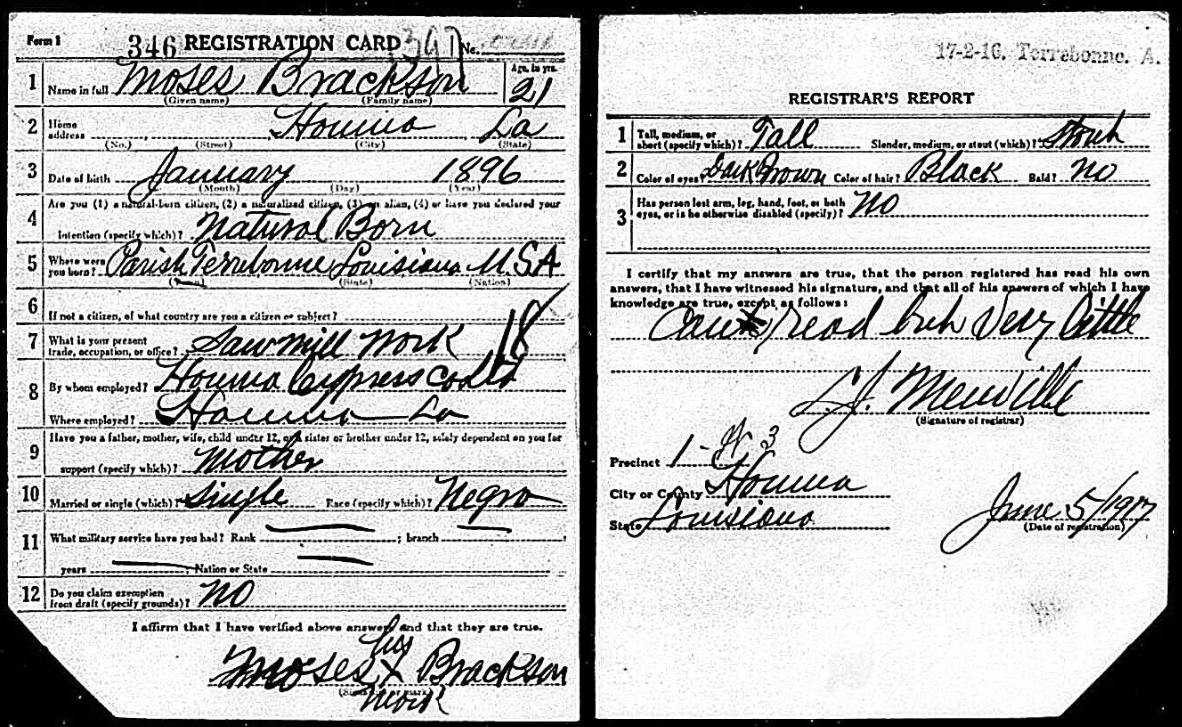 Form 1 346 REGISTRATION CARD 397 No.
1 Name in full Moses Brackson Age, in yrs. 21
(Given name) (Family name)
2 Home address Houma La
(No.) (Street) (City) (State)
3 Date of birth January 1896
(Month) (Day) (Year)
4 Are you (1) a natural-born citizen, (2) a naturalized citizen, (3) an alien, (4) or have you declared your
intention (specify which)? Natural Born
5 Where were you born? Parish Terrebonne Louisiana U.S.A
(Town) (State) (Nation)
6 If not a citizen, of what country are you a citizen or subject?
7 What is your present trade, occupation, or office? Saw mill Work 18
8 By whom employed? Houma Cypress Co Ltd
Where employed? Houma La
9 Have you a father, mother, wife, child under 12, or a sister or brother under 12, solely dependent on you for
support (specify which)? Mother
10 Married or single (which)? Single Race (specify which)? Negro
11 What military service have you had? Rank ; branch ;
years ; Nation or State
12 Do you claim exemption from draft (specify grounds)? No
I affirm that I have verified above answers and that they are true.
his
Moses X Brackson
(Signature or mark)
Mark
17-2-16. Terrebonne. A.
REGISTRAR'S REPORT
1 Tall, medium, or short (specify which)? Tall Slender, medium, or stout (which)? Stout
2 Color of eyes? Dark Brown Color of hair? Black Bald? No
3 Has person lost arm, leg, hand, foot, or both eyes, or is he otherwise disabled (specify)? No
I certify that my answers are true, that the person registered has read his own
answers, that I have witnessed his signature, and that all of his answers of which I have
knowledge are true, except as follows:
read but Very Little
J. Menville
(Signature of registrar)
Precinct 1 - W 3
City or County Houma
State Louisiana
June 5/1917
(Date of registration)